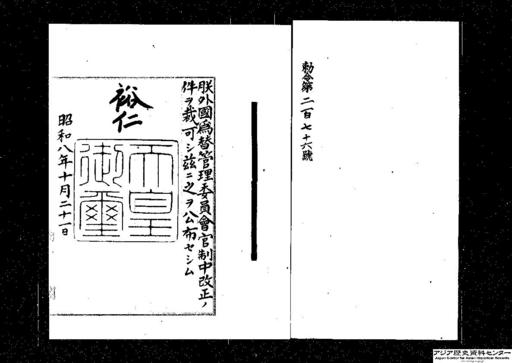 勅令第二百七十六號
朕外國爲替管理委員會官制中改正ノ
件ヲ裁可シ茲ニ之ヲ公布セシム
裕仁
天皇御璽
昭和八年十月二十一日
アジア歴史資料センター
Japan Center for Asian Historical Records